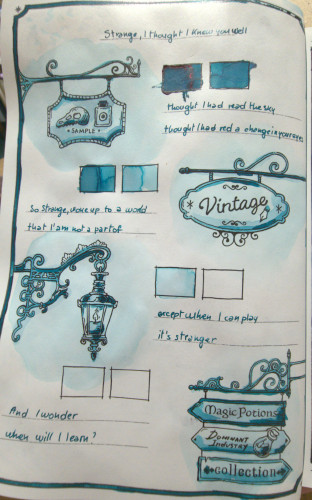 Strange, I thought I knew you well
• SAMPLE •
thought I had read the sky
thought I had red a change in your eyes
So Strange, woke up to a world
that I am not a part of
Vintage
except when I can play
it's stranger
And I wonder
when will I learn?
Magic Potions
DOMINANT
INDUSTRY
collection